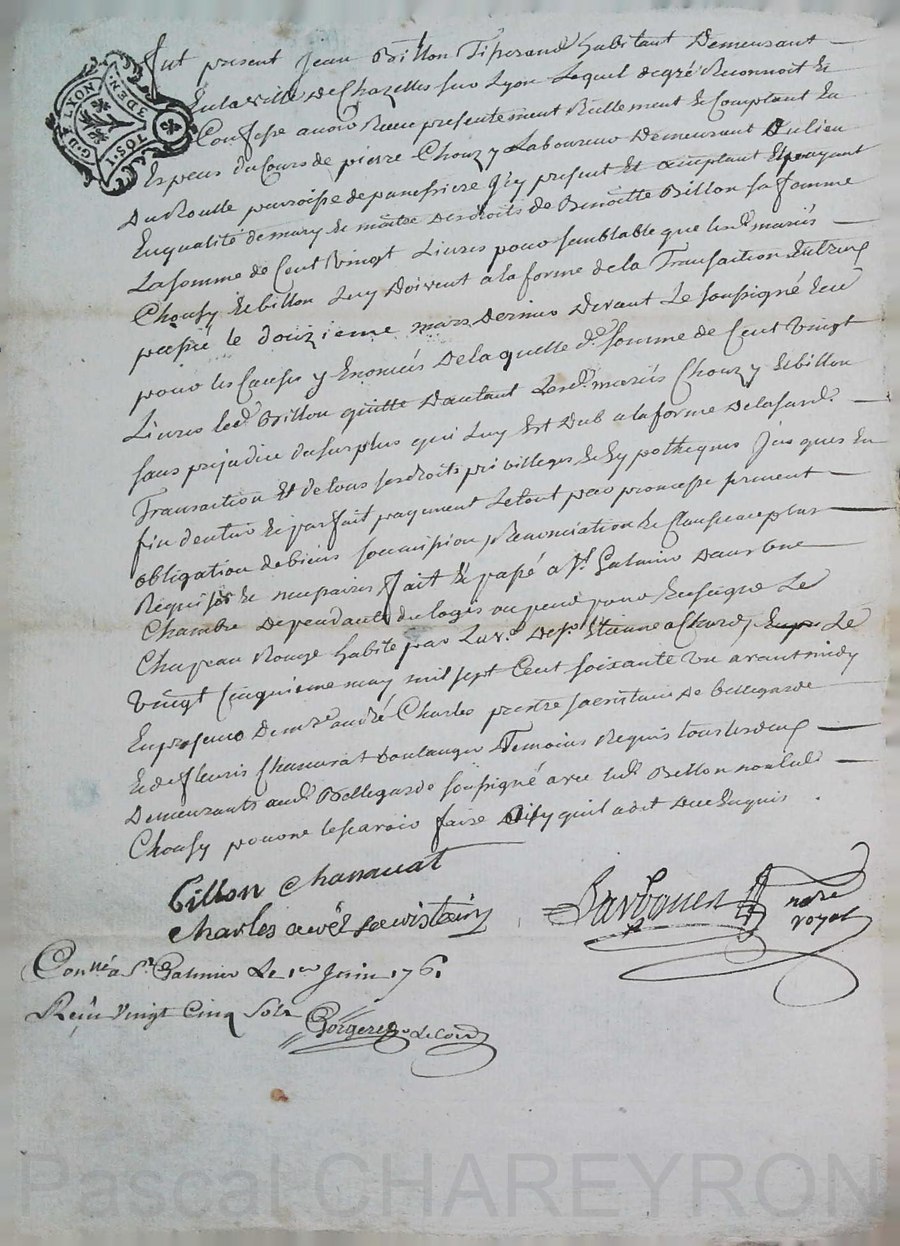 G. DE LYON
TOS. 1
3 DEN.
Fut present Jean Billon Tisserand habitant Demeurant
En la ville De Chazelles sur Lyon Lequel degré Reconnoit Et
Confesse avoir Receu présentement Reellement Et Comptant En
Especes du Cours de pierre Chouzy Laboureur Demeurant Au lieu
Du parroisse de panissiere Icy présent Et acceptant Et payant
En qualité de mary Et maitre Des droits de Benoitte Billon sa femme
La somme de Cent Vingt Livres pour semblable que lesd. mariés
Chousy Et billon Luy Doivent a la forme de la Transaction Entreux
passé le douzieme mars Dernier Devant Le soussigné
pour les Causes y Enoncés De laquelle de. somme de Cent Vingt
Livres led. Billon quitte Dautant Lesd. mariés Chouzy Et billon
sans prejudice du surplus qui Luy Est Dub a la forme De la susd.
Transaction Et de tous ses droits privilleges Et hypotheques Jusques En
fin dentier Et parfait payement Le tout par promesse serment
obligation de biens soumission Renonciation Et Clauses
Requises Et Fait Et passé a St. Galmier Dans une
Chambre Dependante du logis ou pend pour Enseigne Le
Chapeau Rouge habité par La ve. De Etienne Le
Vingt Cinquieme may mil sept Cent soixante Un avant midy
En presence De mre. andré Charles prestre sacristain De bellegarde
Et de fleuris Chanurat boulanger Temoins Requis tous les deux
Demeurants aud. Bellegarde soussigné avec led. Billon non led.
Chousy pour ne le scavoir faire De ce Enquis.
billon Chanurat
Charles
nore royal
Conllé a St. Galmier Le 1er Juin 1761
Reçu Vingt Cinq Sols
Pascal CHAREYRON